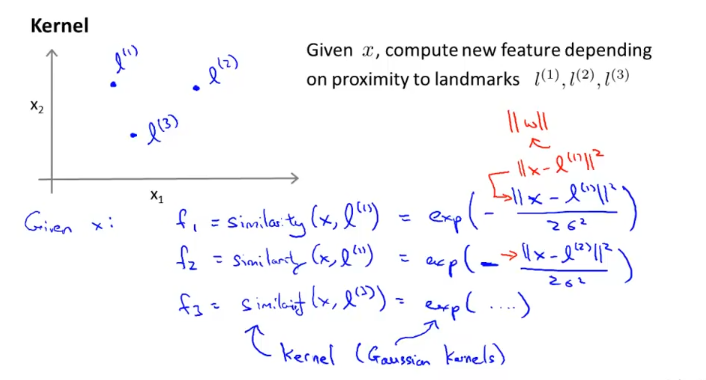 Kernel
Given x, compute new feature depending
on proximity to landmarks l⁽¹⁾, l⁽²⁾, l⁽³⁾
l⁽¹⁾
l⁽²⁾
l⁽³⁾
x₂
x₁
||w||
||x - l⁽¹⁾||²
Given x: f₁ = similarity(x, l⁽¹⁾) = exp(- ||x - l⁽¹⁾||² / 2σ²)
f₂ = similarity(x, l⁽²⁾) = exp(- ||x - l⁽²⁾||² / 2σ²)
f₃ = similarity(x, l⁽³⁾) = exp(....)
Kernel (Gaussian kernels)